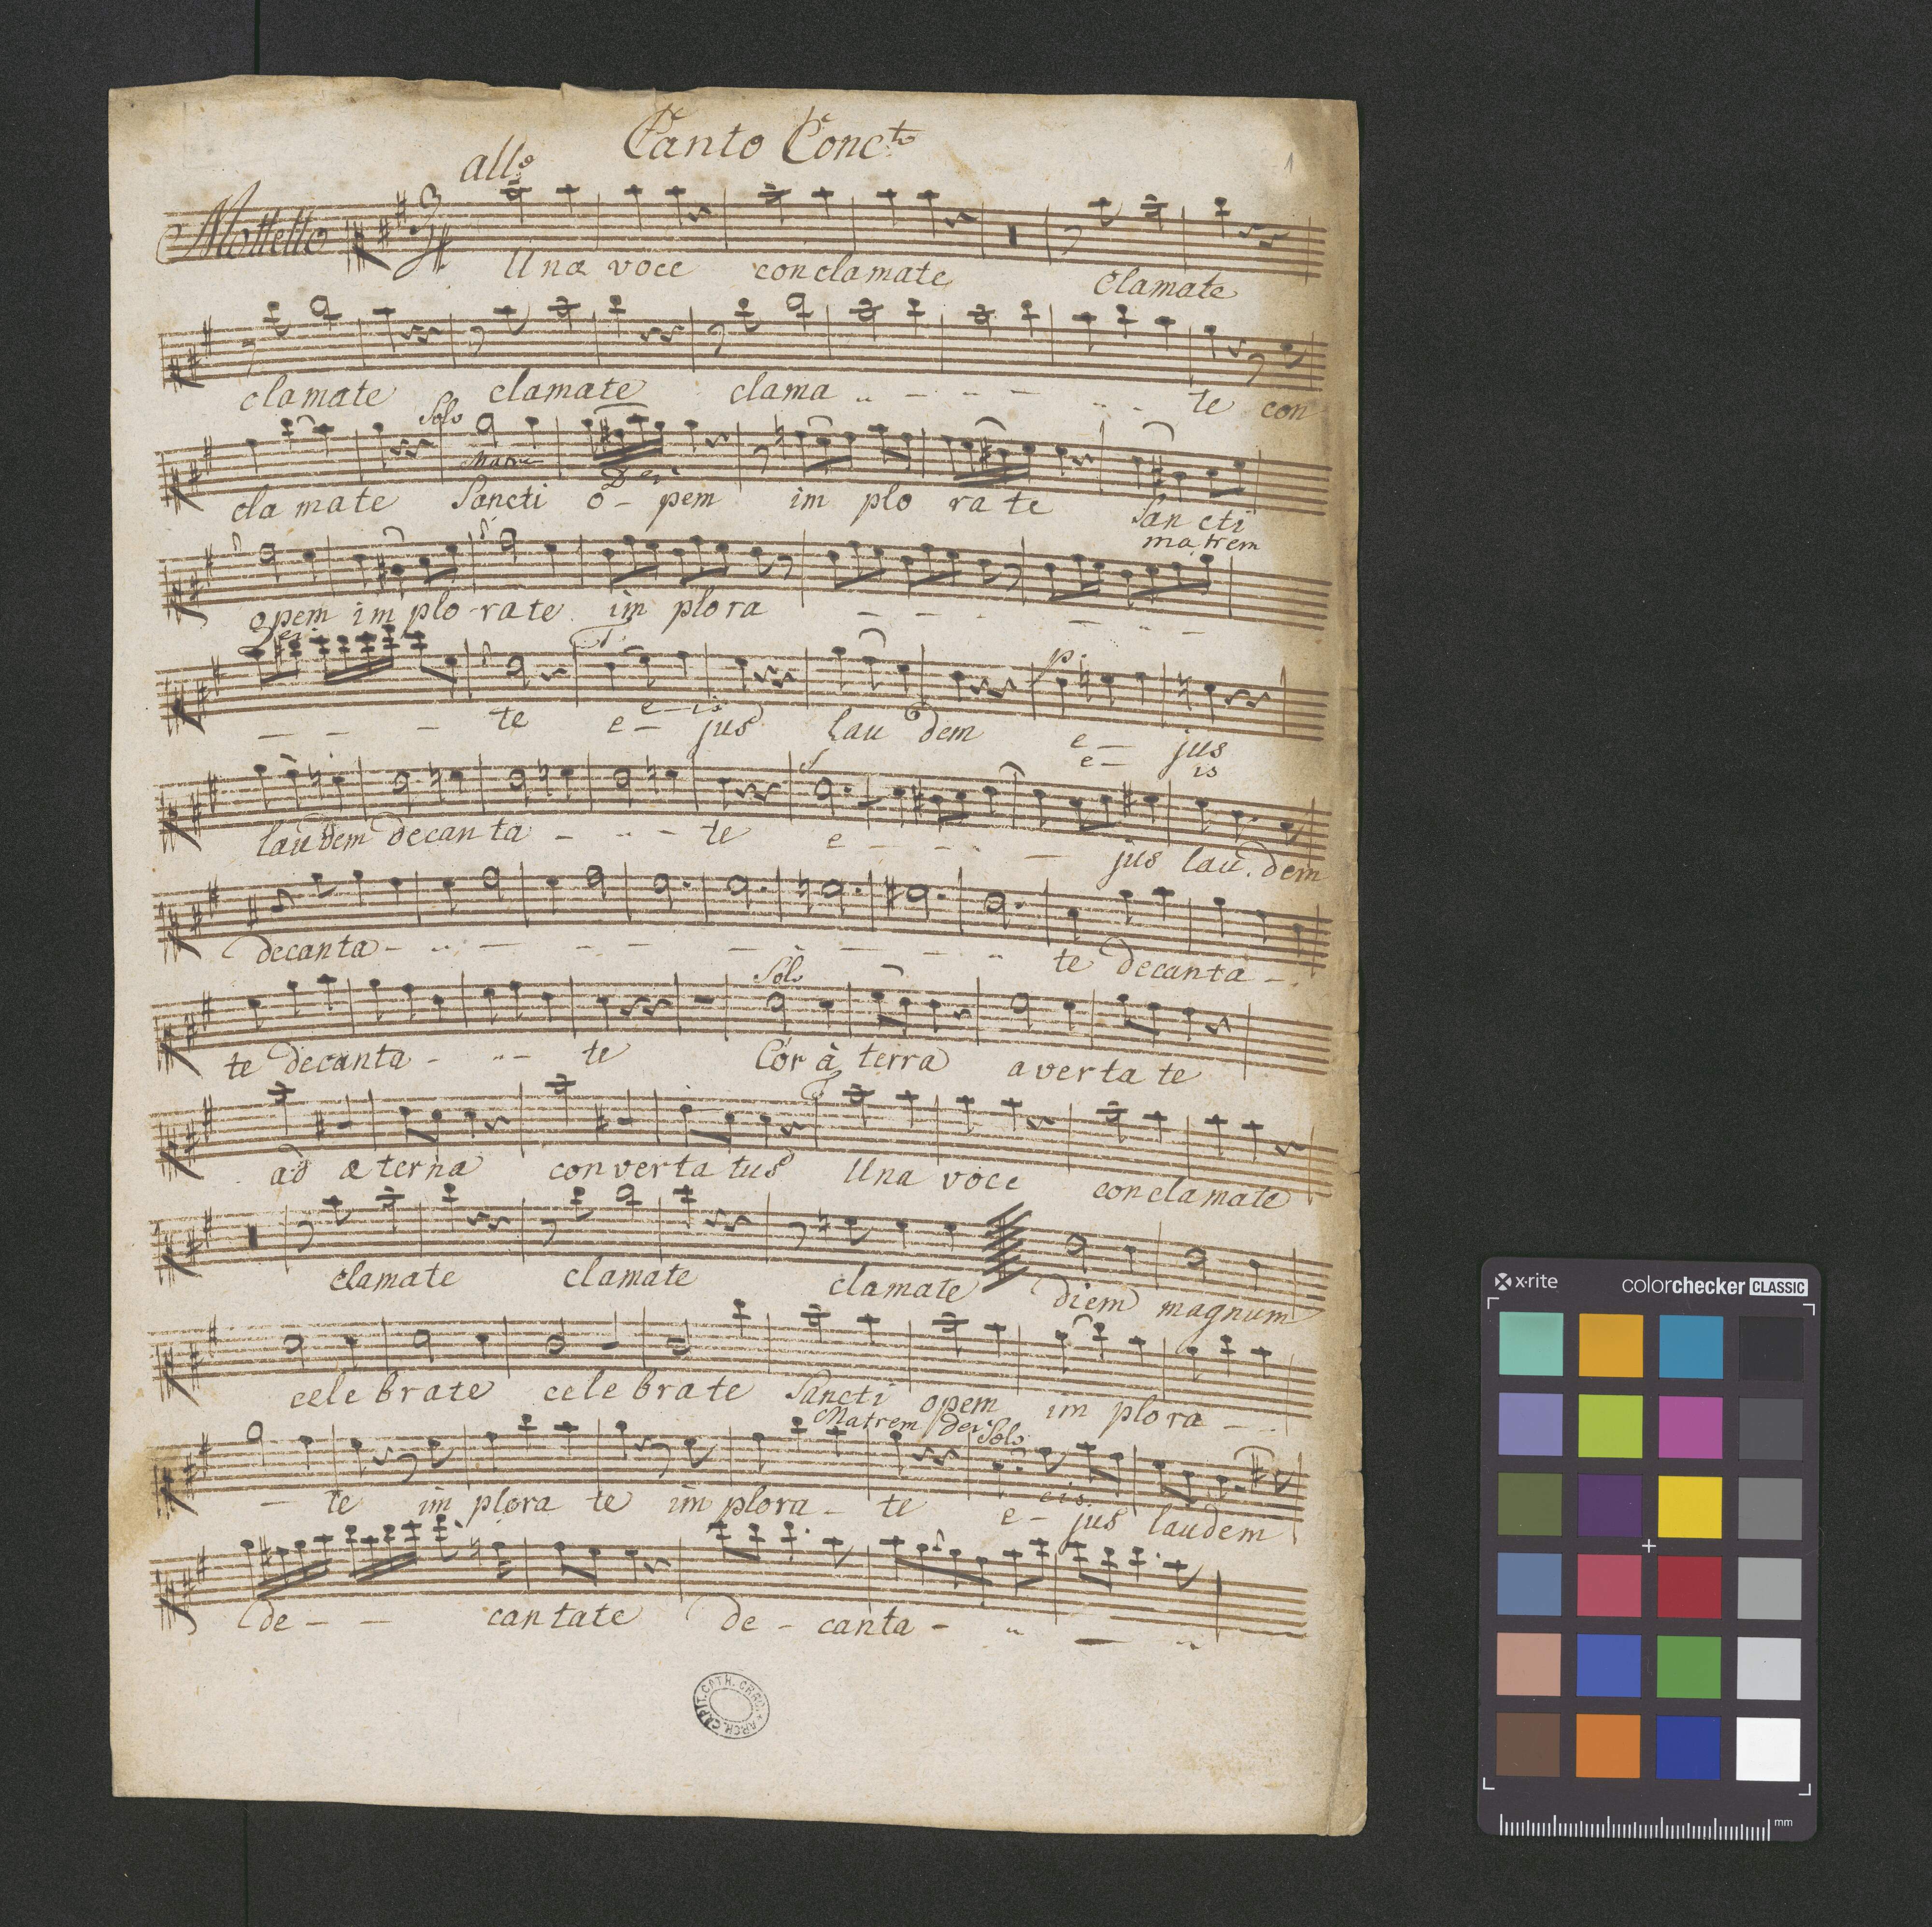 Canto Conc.to
1
all.o
Mottetto
Una voce conclamate clamate
clamate clamate clama te con
Solo
Matre Dei
clamate Sancti o - pem im plo ra te Sancti
matrem
opem im plo - rate im plora
Dei
te e - jus laudem e - jus
e - is
e - is
p.
laudem decanta - te e - jus laudem
decanta - te decanta -
Solo
te decanta - te Cor à terra averta te
ad æterna converta tus Una voce conclamate
clamate clamate clamate diem magnum
celebrate celebrate Sancti opem im plora -
Matrem dei Solo
- te im plora te im plora - te e - jus laudem
eis
de - - cantate de - canta -
ARCH. CAPIT. CATH. CRAC.
x-rite
colorchecker CLASSIC
mm